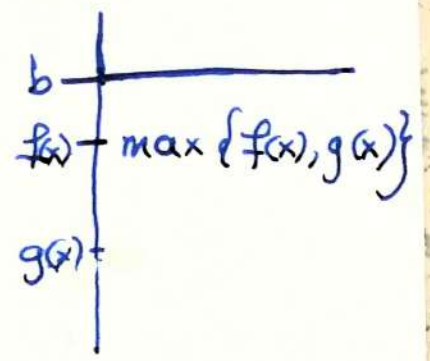 b
f(x) max {f(x), g(x)}
g(x)